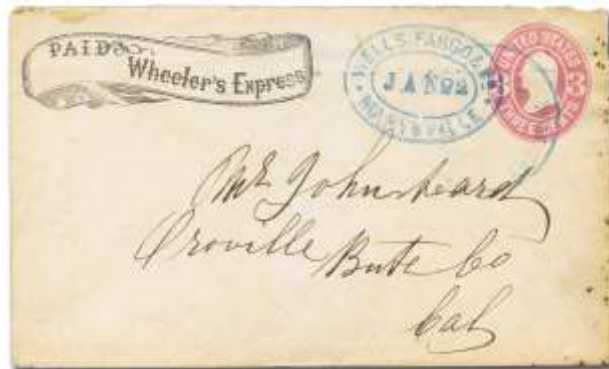 PAID
Wheeler's Express
WELLS, FARGO & Co
JAN 22
UNITED STATES
THREE CENTS
Mr John Heard
Oroville Bute Co
Cal